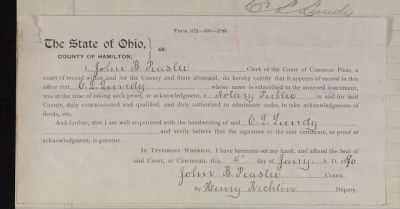 C L Lundy
The State of Ohio, } ss.
COUNTY OF HAMILTON,
I, John B. Peaslee Clerk of the Court of Common Pleas, a
court of record within and for the County and State aforesaid, do hereby certify that it appears of record in this
office that C. L. Lundy whose name is subscribed to the annexed instrument,
was at the time of taking such proof, or acknowledgment, a Notary Public in and for said
County, duly commissioned and qualified, and duly authorized to administer oaths, to take acknowledgments of
deeds, etc.
And further, that I am well acquainted with the handwriting of said C. L. Lundy
and verily believe that the signature to the said certificate, or proof of
acknowledgment, is genuine.
IN TESTIMONY WHEREOF, I have hereunto set my hand, and affixed the Seal of
said Court, at Cincinnati, this day of Jany. A. D. 1890
John B. Peaslee Clerk.
By Henry Deputy.